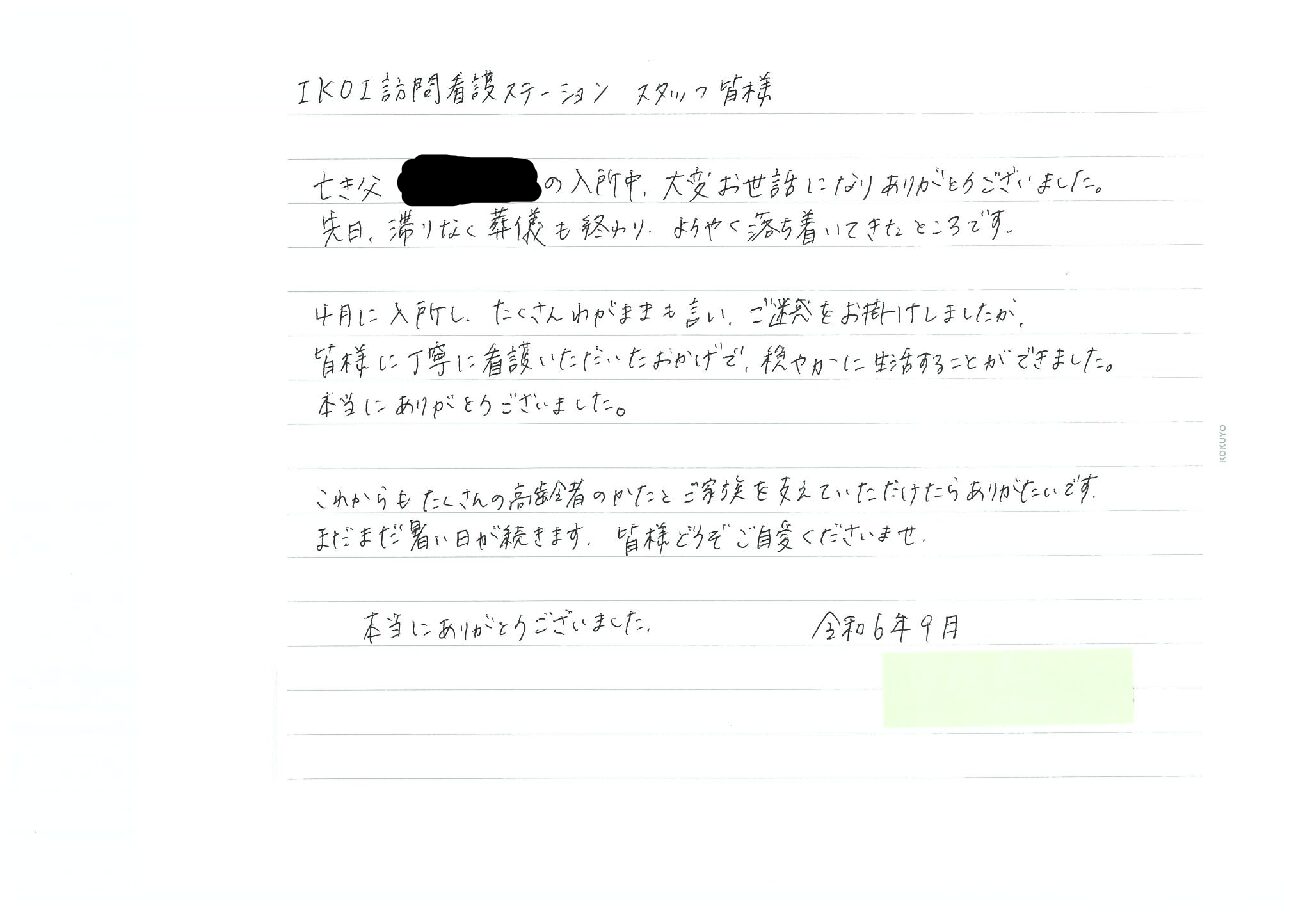 IKOI訪問看護ステーション スタッフ皆様
亡き父 の入所中、大変お世話になりありがとうございました。
先日、滞りなく葬儀も終わり、ようやく落ち着いてきたところです。
4月に入所し、たくさんわがままも言い、ご迷惑をお掛けしましたが、
皆様に丁寧に看護いただいたおかげで、穏やかに生活することができました。
本当にありがとうございました。
これからもたくさんの高齢者のかたとご家族を支えていただけたらありがたいです。
まだまだ暑い日が続きます。皆様どうぞご自愛くださいませ。
本当にありがとうございました。 令和6年9月
KOKUYO